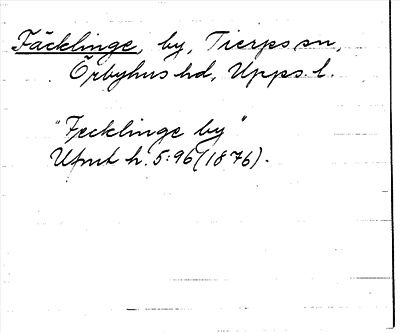 Fäcklinge, by, Tierps sn,
Örbyhus hd, Upps. l.
"Fecklinge by"
Ufmt h. 5:96 (1876).